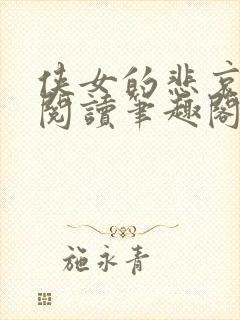 侠女的悲哀
閱讀筆趣閣
施永青